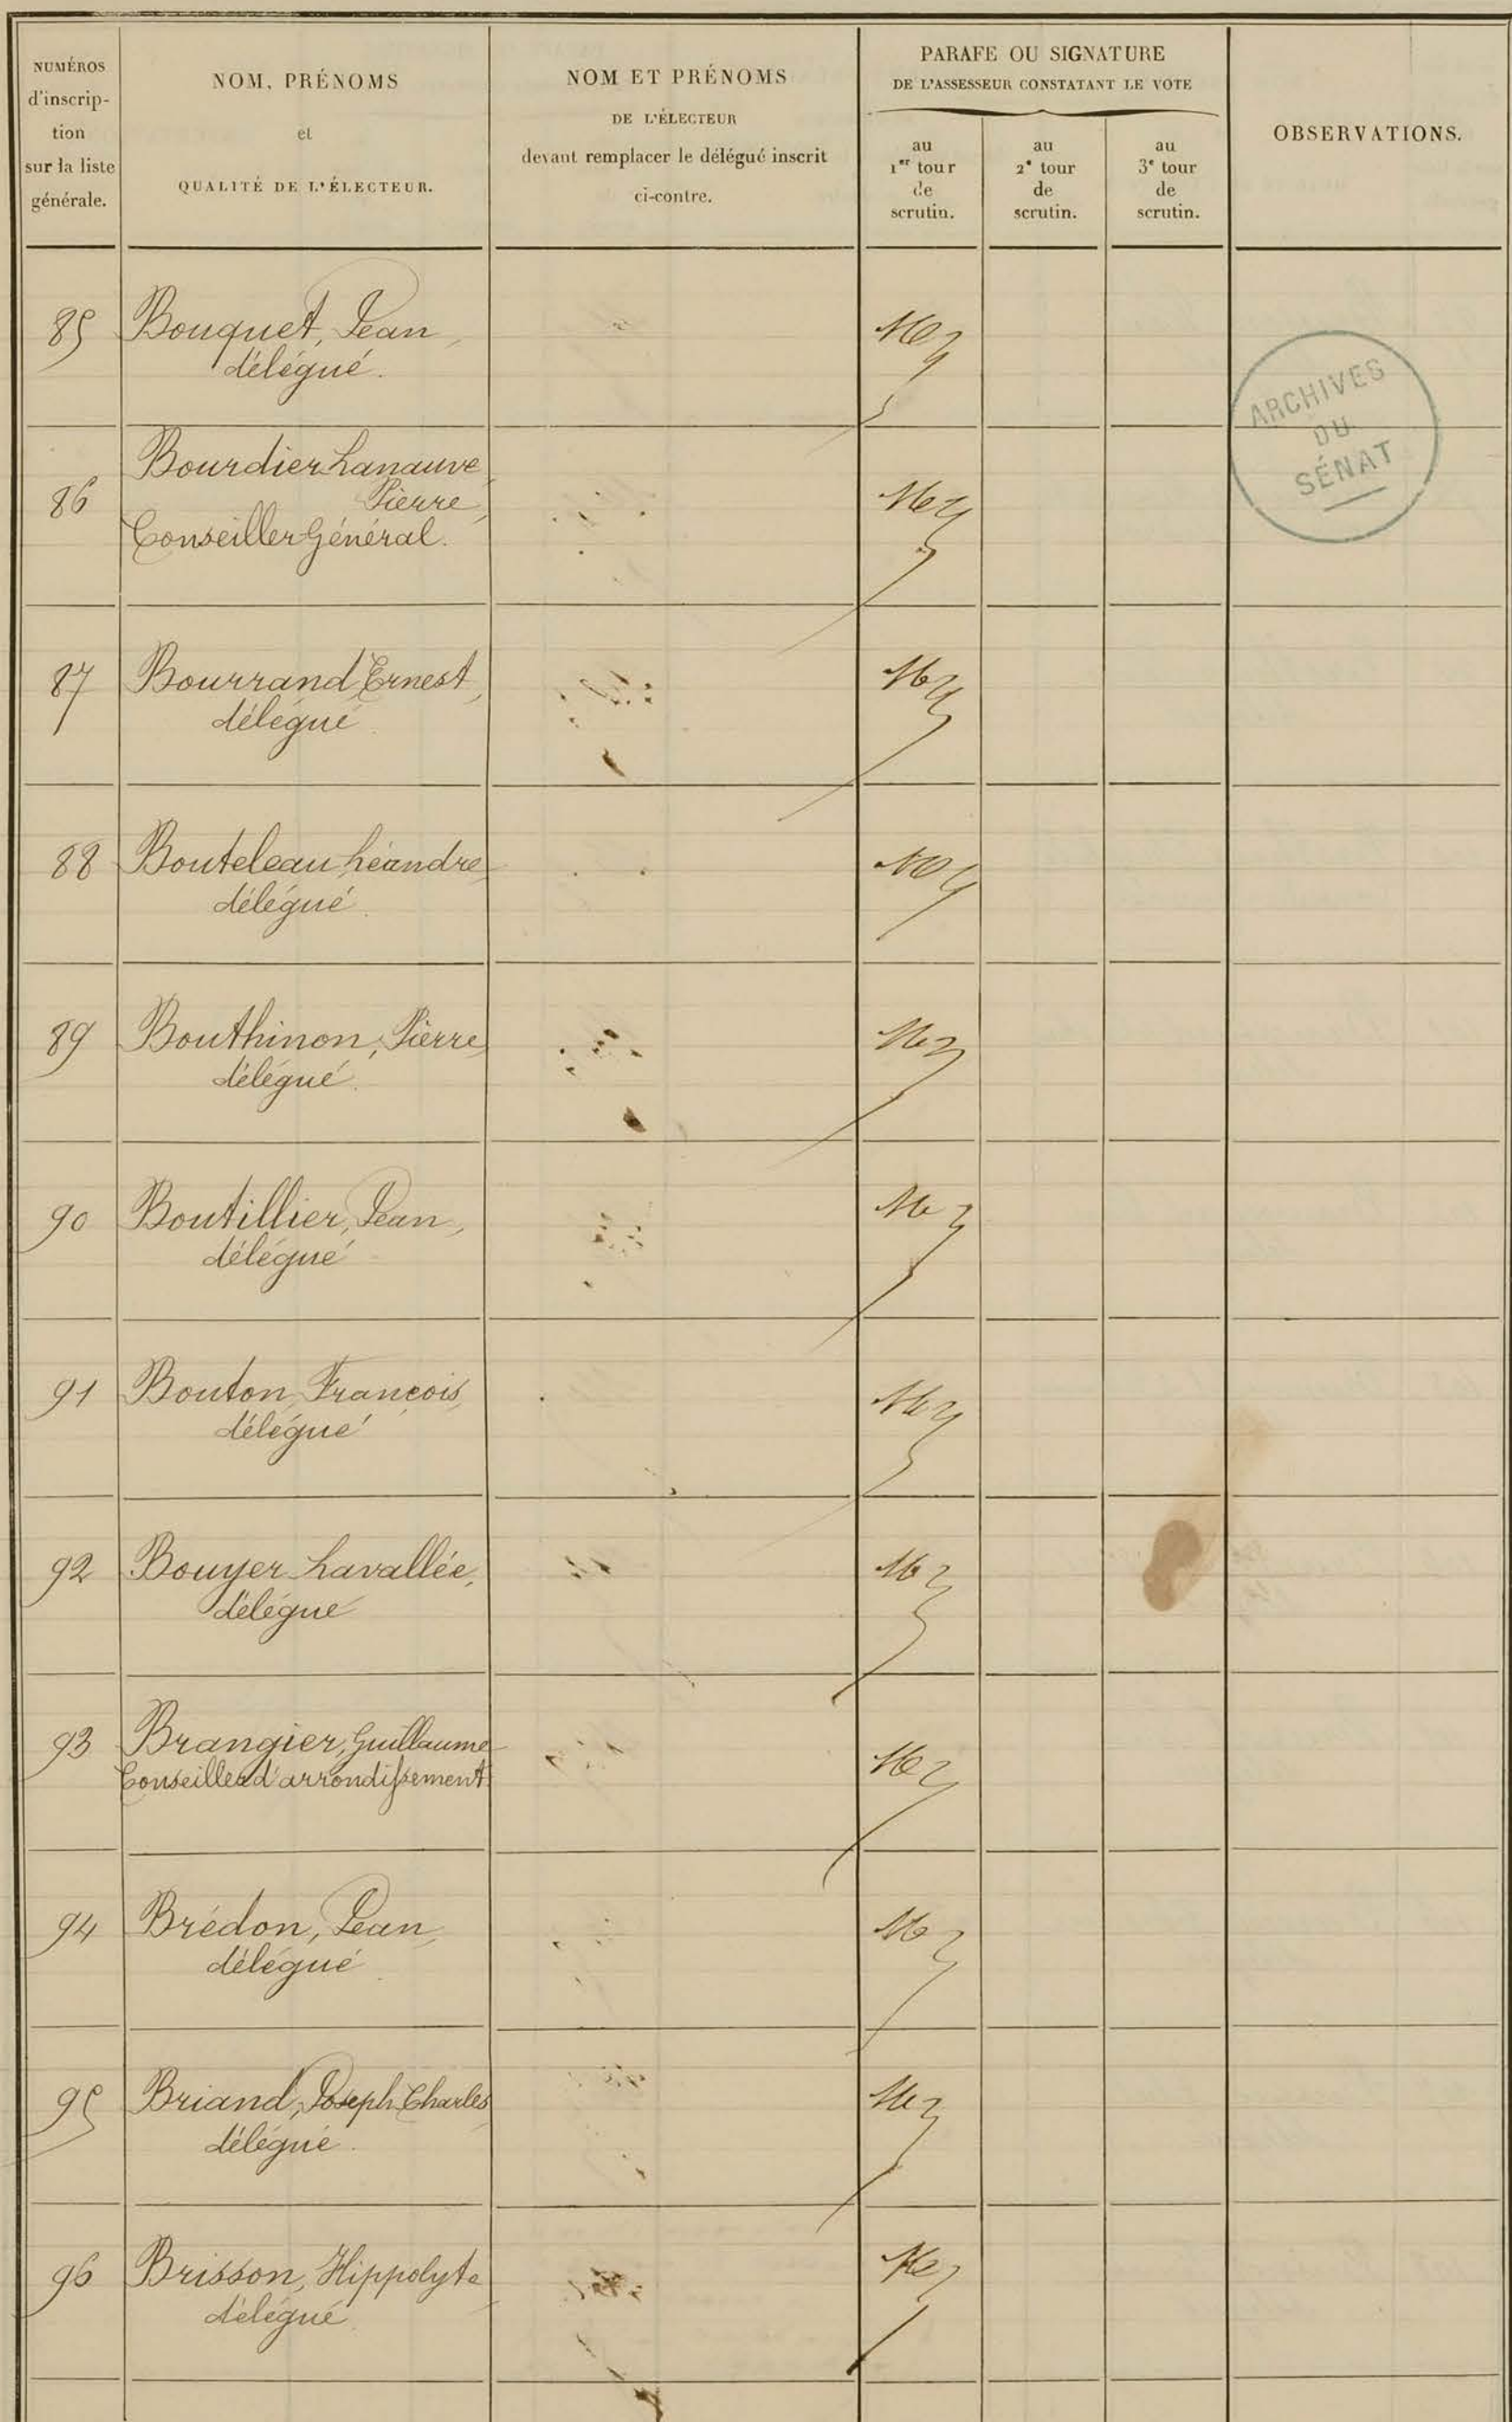 NUMÉROS
d'inscrip-
tion
sur la liste
générale.
NOM, PRÉNOMS
et
QUALITÉ DE L'ÉLECTEUR.
NOM ET PRÉNOMS
DE L'ÉLECTEUR
devant remplacer le délégué inscrit
ci-contre.
PARAFE OU SIGNATURE
DE L'ASSESSEUR CONSTATANT LE VOTE
au
1er tour
de
scrutin.
au
2e tour
de
scrutin.
au
3e tour
de
scrutin.
OBSERVATIONS.
85 Bouquet, Jean,
délégué.
ARCHIVES
DU
SÉNAT
Bourdier Lanauve,
86 Pierre,
Conseiller Général.
87 Bourrand, Ernest,
délégué
88 Bouteleau, Léandre,
délégué.
89 Bouthinon, Pierre,
délégué.
90 Boutillier, Jean,
délégué
91 Bouton, François,
délégué
92 Bouyer-Lavallée,
délégué
93 Brangier, Guillaume
Conseiller d'arrondissement
94 Brédon, Jean,
délégué
95 Briand, Joseph Charles,
délégué.
96 Brisson, Hippolyte
délégué